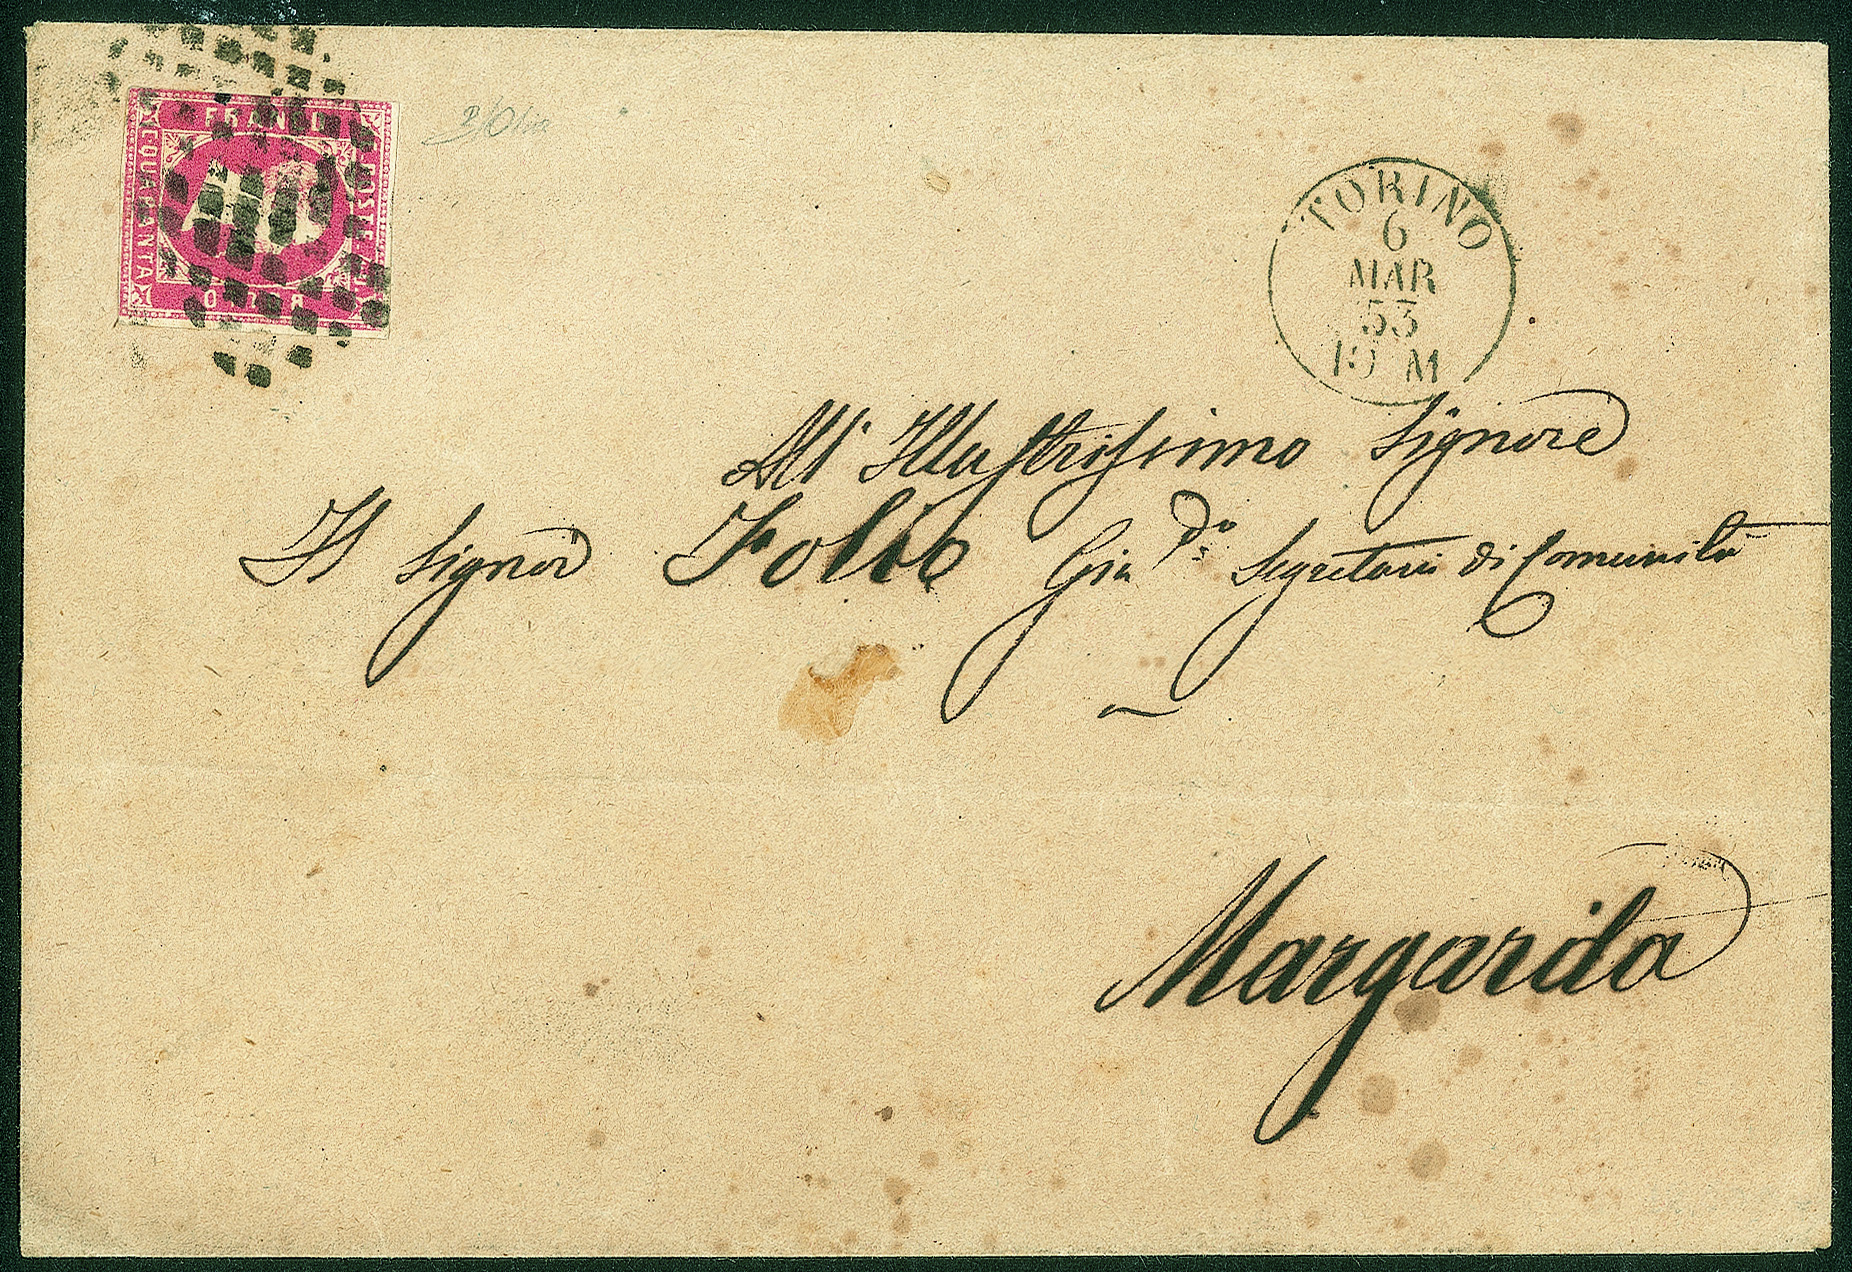 FRANCO
POSTE
C. QUARANTA
TORINO
6
MAR
53
10 M
All' Illustrissimo Signore
Il Signor Folco Gia Segretario di Comunità
Margarita